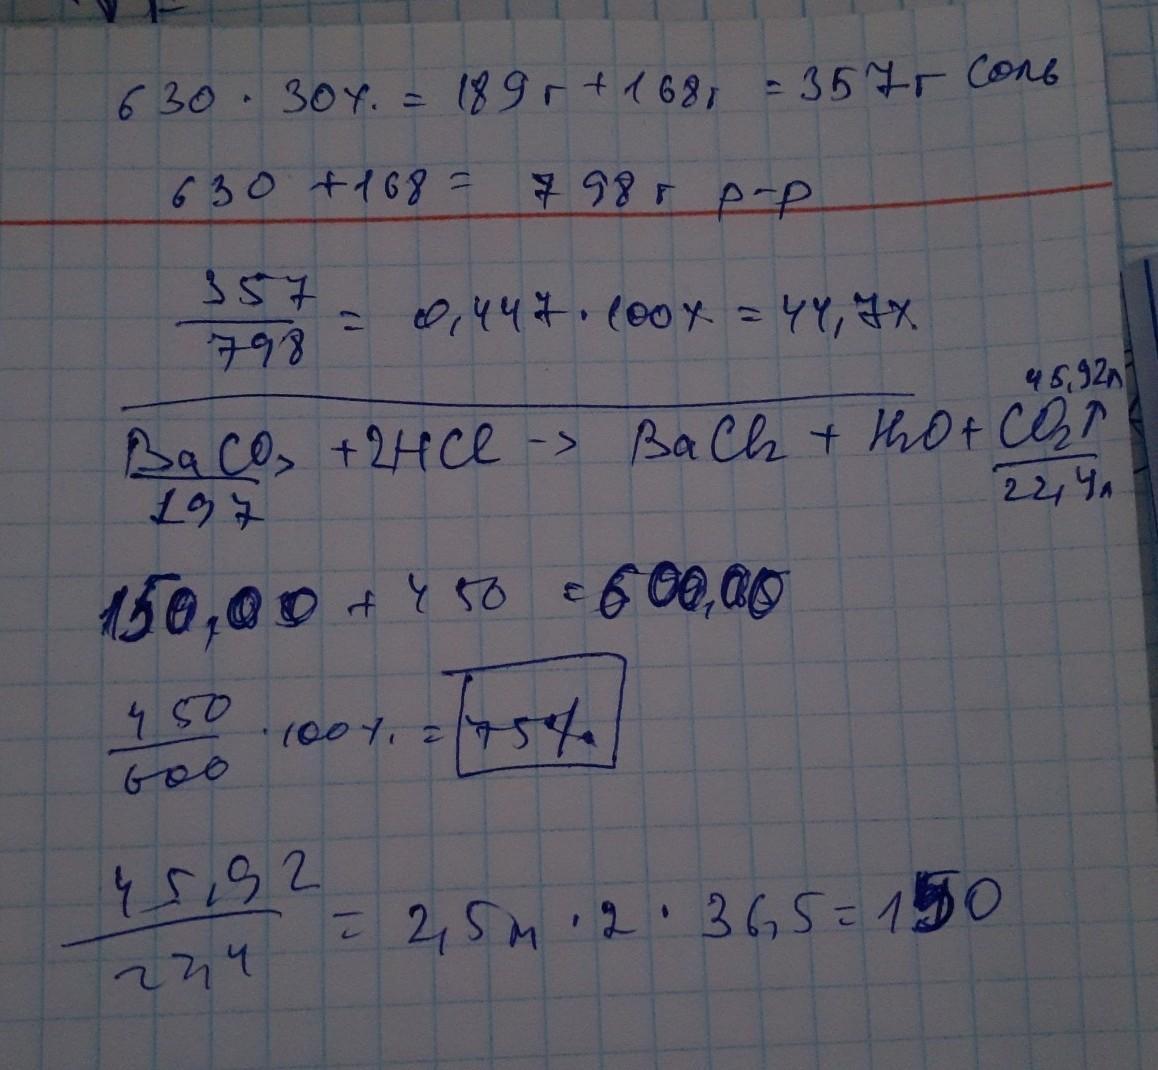 630 · 30% = 189г + 168г = 357г соль
630 + 168 = 798г р-р
357
798
= 0,447 · 100% = 44,7%
45,92л
BaCO3 + 2HCl -> BaCl2 + H2O + CO2↑
197
22,4л
150,00 + 450 = 600,00
450
600
· 100% = 75%
45,92
22,4
= 2,5м · 2 · 36,5 = 150